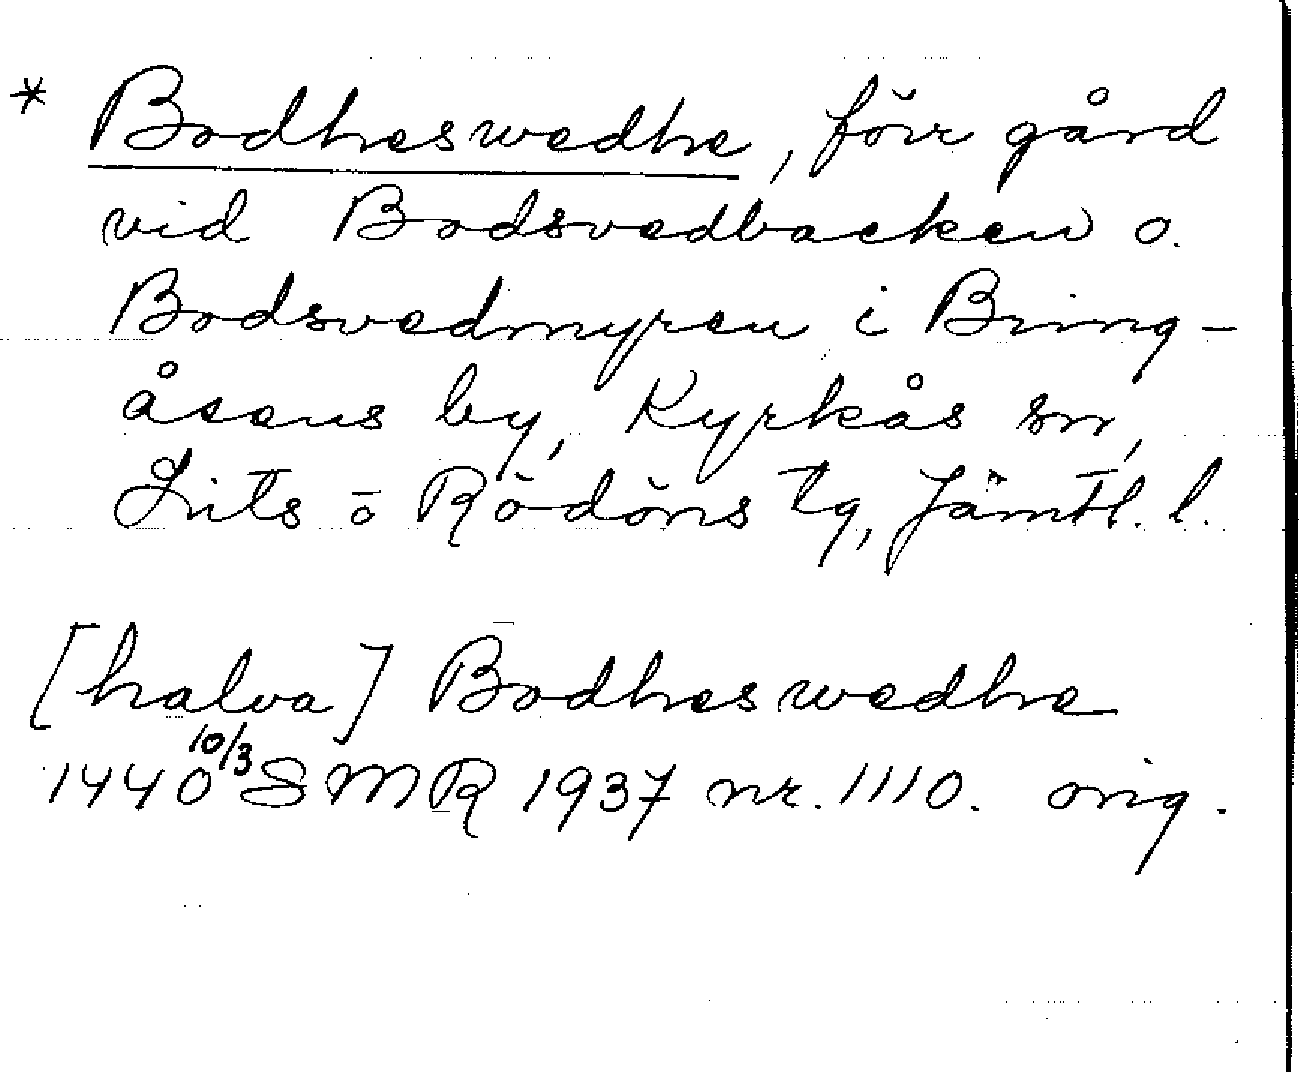 * Bodheswedhe, förr gård
vid Bodsvedbacken o.
Bodsvedmyren i Bring-
åsens by, Kyrkås sn,
Lits o Rödöns tg, Jämtl. l.
[halva] Bodheswedhe
1440 10/3 SMR 1937 nr. 1110. orig.